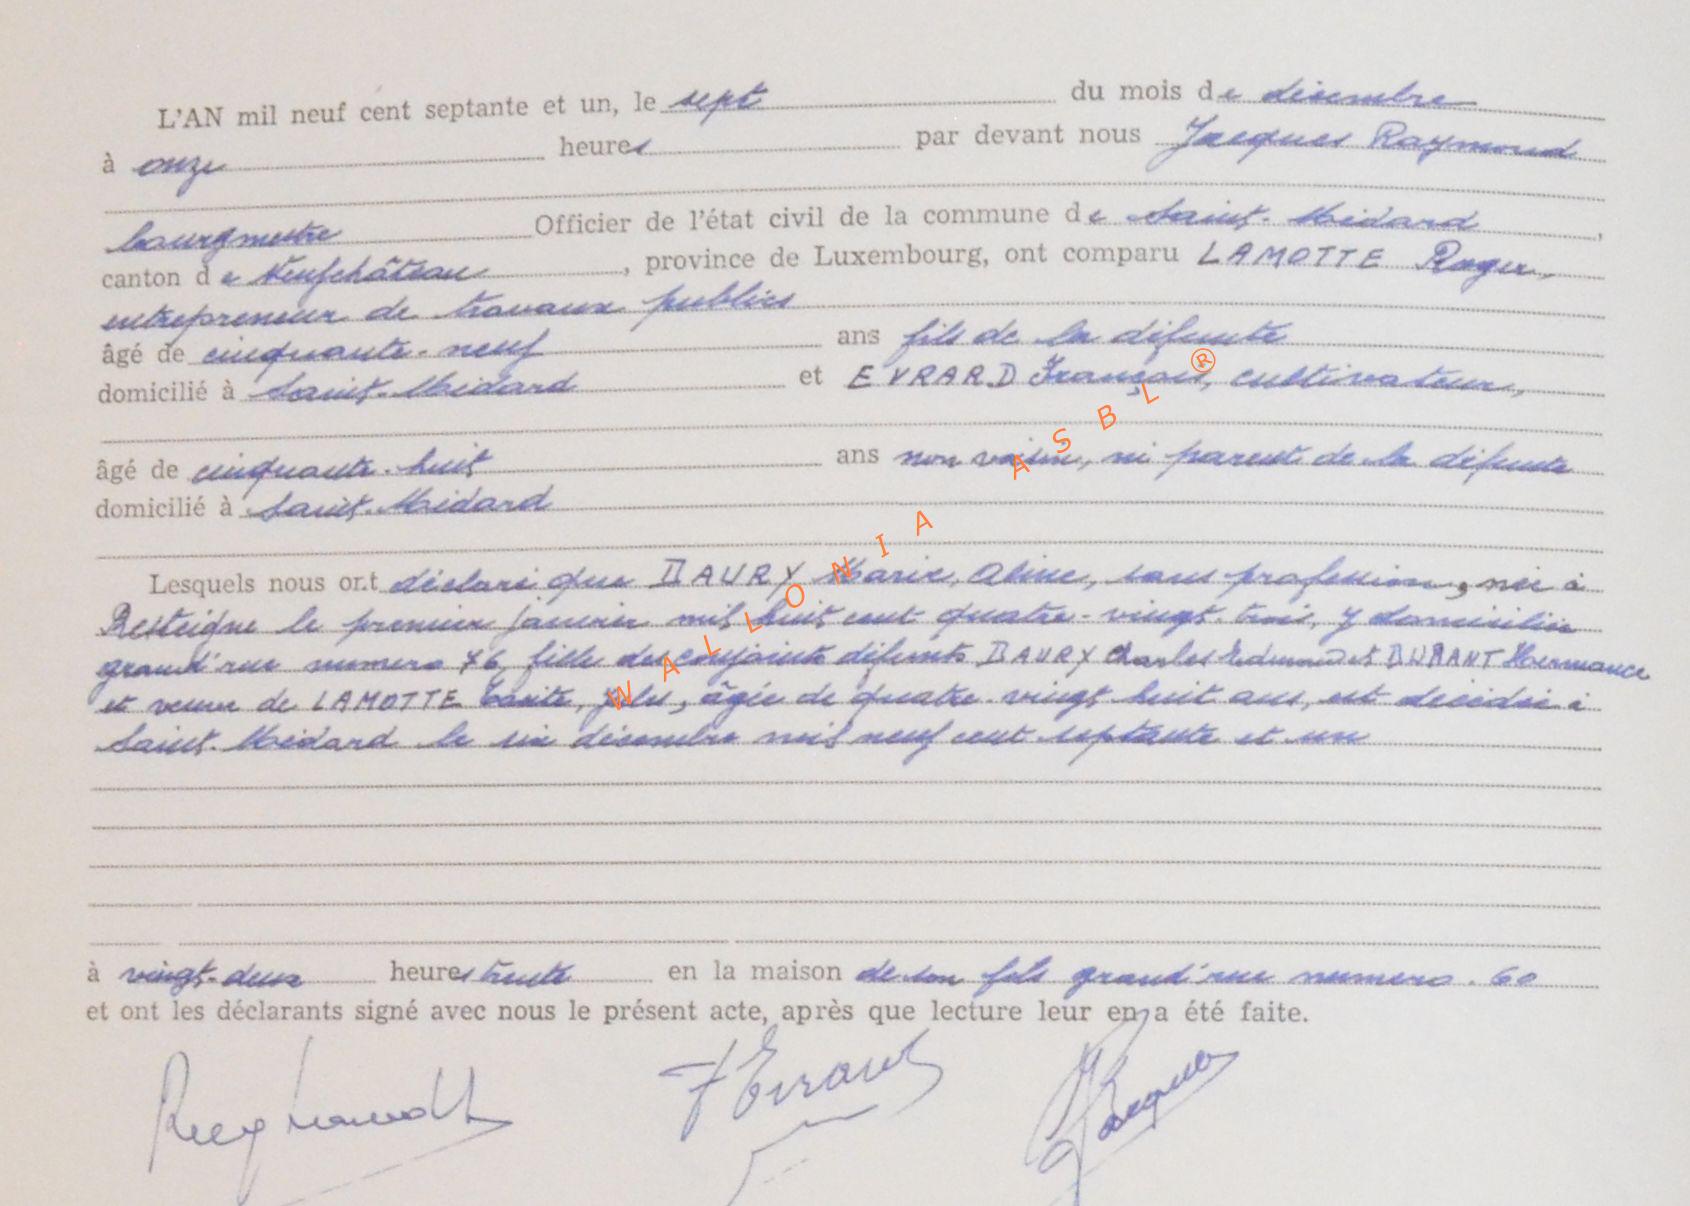 L'AN mil neuf cent septante et un, le sept du mois de décembre
à onze heures par devant nous Jacques Raymond
bourgmestre Officier de l'état civil de la commune de Saint-Médard,
canton de Neufchâteau, province de Luxembourg, ont comparu LAMOTTE Roger,
entrepreneur de travaux publics
âgé de cinquante-neuf ans fils de la défunte
domicilié à Saint-Médard et EVRARD François, cultivateur,
âgé de cinquante-huit ans non voisin, ni parent de la défunte
domicilié à Saint-Médard
Lesquels nous ont déclaré que BAURY Marie, Aline, sans profession, née à
Resteigne le premier janvier mil huit cent quatre-vingt-trois, y domiciliée
grand'rue numero 76, fille des conjoints défunts BAURY Charles Edmond et DURANT Hermance
et veuve de LAMOTTE Jules, âgée de quatre-vingt huit ans, est décédée à
Saint-Médard le six décembre mil neuf cent septante et un
à vingt-deux heures trente en la maison de son fils grand'rue numero. 60
et ont les déclarants signé avec nous le présent acte, après que lecture leur en a été faite.
F Evrard
WALLONIA ASBL®